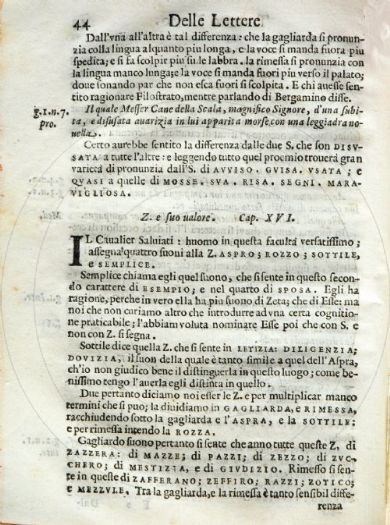 44 Delle Lettere
Dall'vna all'altra è tal differenza: che la gagliarda si pronun-
zia colla lingua alquanto piu longa, e la voce si manda fuora piu
spedita; e si fa scolpir piu sule labbra. la rimessa si pronunzia con
la lingua manco lunga; e la voce si manda fuori piu verso il palato;
doue ionando par che non esca fuori si scolpita. E chi auesse sen-
tito ragionare Filostrato, mentre parlando di Bergamino disse.
Il quale Messer Cane della Scala, magnifico Signore, d'una subi-
g. 1. n. 7. ta, e disusata auarizia in lui apparita morse con una leggiadra no-
pro. uella.
Certo aurebbe sentito la differenza dalle due S. che son DISV-
SATA a tutte l'altre: e leggendo tutto quel proemio trouerà gran
varietà di pronunzia dall'S. di AVVISO. GVISA, VSATA; e
QVASI a quelle di MOSSE. SVA. RISA. SEGNI. MARA-
VIGLIOSA.
Z. e suo ualore. Cap. XVI.
IL Caualier Saluiati: huomo in questa facultà versatissimo;
assegna quattro suoni alla Z. ASPRO; ROZZO; SOTTILE,
e SEMPLICE.
Semplice chiama egli quel suono, che si sente in questo secon-
do carattere di ESEMPIO; e nel quarto di SPOSA. Egli ha
ragione, perche in vero ella ha piu suono di Zeta; che di Esse: ma
noi che non curiamo altro che introdurre ad vna certa cognitio-
ne praticabile; l'abbiam voluta nominare Esse poi che con S. e
non con Z. si segna.
Sottile dice quella Z. che si sente in LETIZIA: DILIGENZIA;
DOVIZIA, il suon della quale è tanto simile a quel dell'Aspra,
ch'io non giudico bene il distinguerla in questo luogo; come be-
nissimo tengo l'auerla egli distinta in quello.
Due pertanto diciamo noi esser le Z. e per multiplicar manco
termini che si puo; la diuidiamo in GAGLIARDA, e RIMESSA,
racchiudendo sotto la gagliarda e l'ASPRA, e la SOTTILE;
e per rimessa intendo la ROZZA.
Gagliardo suono pertanto si sente che anno tutte queste Z, di
ZAZZERA: di MAZZE; di PAZZI; di ZEZZO; di ZVC-
CHERO; di MESTIZIA, e di GIVDIZIO. Rimesso si sen-
te in queste di ZAFFERANO; ZEFFIRO; RAZZI; ZOTICO;
e MEZZVLE. Tra la gagliarda, e la rimessa è tanto sensibil diffe-
renza